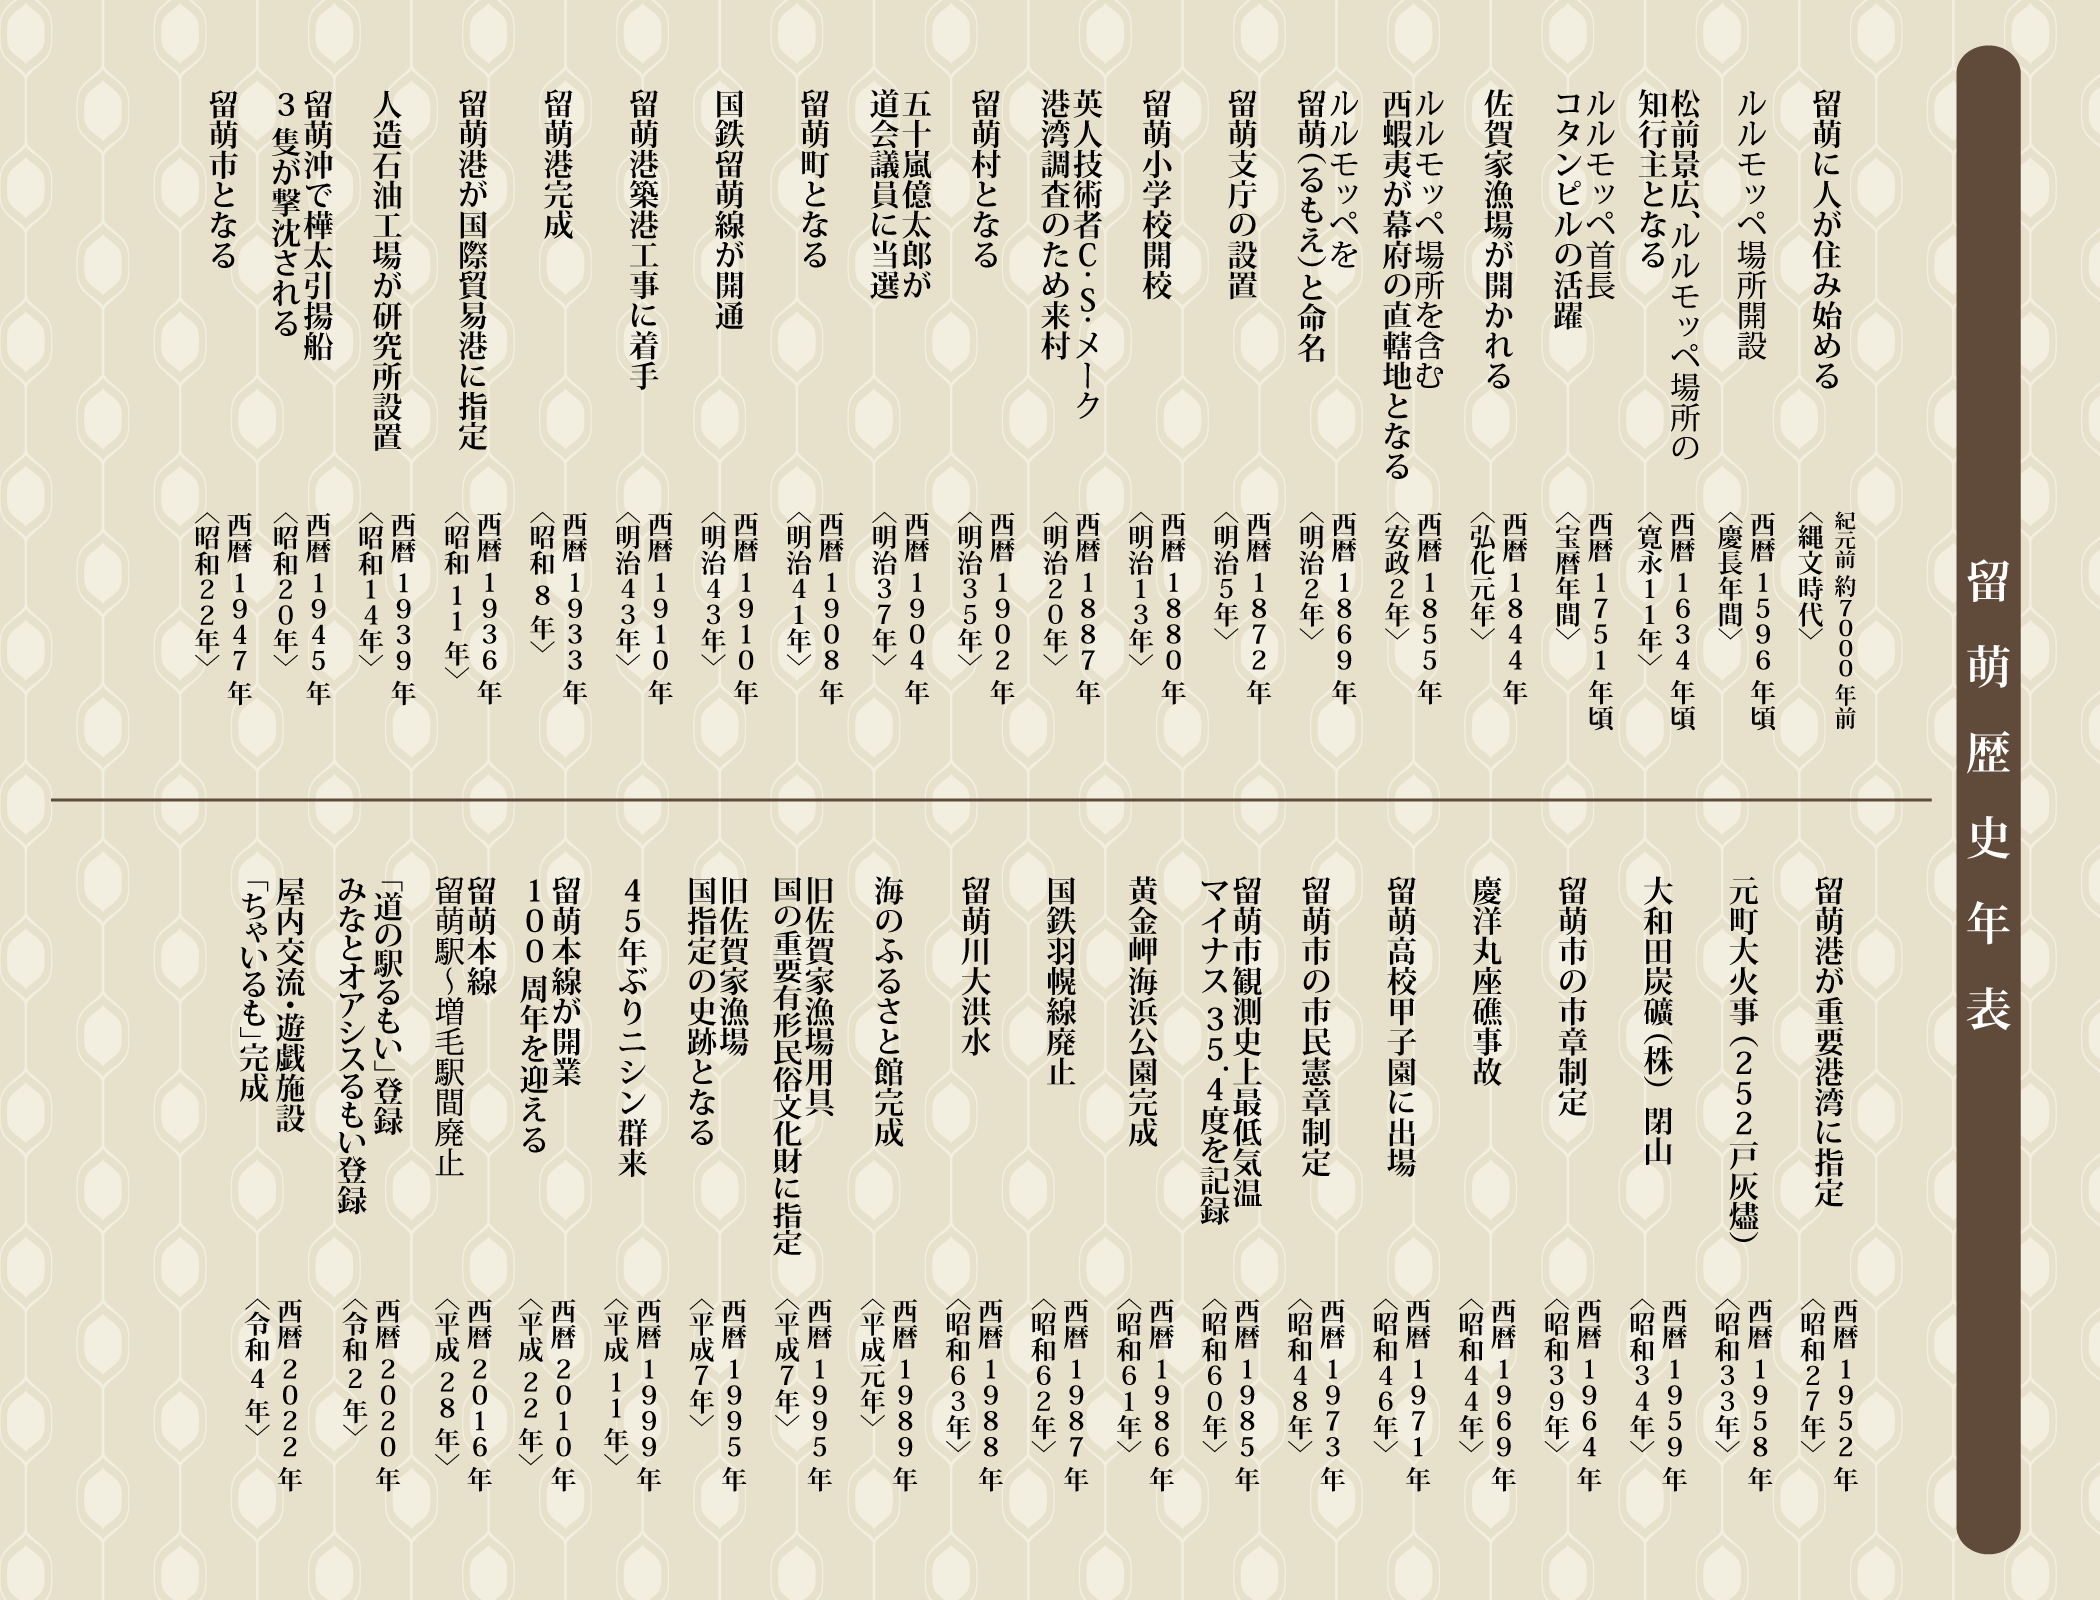 留萌歴史年表
留萌に人が住み始める
紀元前 約7000年前
〈縄文時代〉
ルルモッペ場所開設
西暦1596年頃
〈慶長年間〉
松前景広、ルルモッペ場所の
知行主となる
西暦1634年頃
〈寛永11年〉
ルルモッペ首長
コタンピルの活躍
西暦1751年頃
〈宝暦年間〉
佐賀家漁場が開かれる
西暦1844年
〈弘化元年〉
ルルモッペ場所を含む
西蝦夷が幕府の直轄地となる
西暦1855年
〈安政2年〉
ルルモッペを
留萌(るもえ)と命名
西暦1869年
〈明治2年〉
留萌支庁の設置
西暦1872年
〈明治5年〉
留萌小学校開校
西暦1880年
〈明治13年〉
英人技術者C・S・メーク
港湾調査のため来村
西暦1887年
〈明治20年〉
留萌村となる
西暦1902年
〈明治35年〉
五十嵐億太郎が
道会議員に当選
西暦1904年
〈明治37年〉
留萌町となる
西暦1908年
〈明治41年〉
国鉄留萌線が開通
西暦1910年
〈明治43年〉
留萌港築港工事に着手
西暦1910年
〈明治43年〉
留萌港完成
西暦1933年
〈昭和8年〉
留萌港が国際貿易港に指定
西暦1936年
〈昭和11年〉
人造石油工場が研究所設置
西暦1939年
〈昭和14年〉
留萌沖で樺太引揚船
3隻が撃沈される
西暦1945年
〈昭和20年〉
留萌市となる
西暦1947年
〈昭和22年〉
留萌港が重要港湾に指定
西暦1952年
〈昭和27年〉
元町大火事(252戸灰燼)
西暦1958年
〈昭和33年〉
大和田炭礦(株)閉山
西暦1959年
〈昭和34年〉
留萌市の市章制定
西暦1964年
〈昭和39年〉
慶洋丸座礁事故
西暦1969年
〈昭和44年〉
留萌高校甲子園に出場
西暦1971年
〈昭和46年〉
留萌市の市民憲章制定
西暦1973年
〈昭和48年〉
留萌市観測史上最低気温
マイナス35.4度を記録
西暦1985年
〈昭和60年〉
黄金岬海浜公園完成
西暦1986年
〈昭和61年〉
国鉄羽幌線廃止
西暦1987年
〈昭和62年〉
留萌川大洪水
西暦1988年
〈昭和63年〉
海のふるさと館完成
西暦1989年
〈平成元年〉
旧佐賀家漁場用具
国の重要有形民俗文化財に指定
西暦1995年
〈平成7年〉
旧佐賀家漁場
国指定の史跡となる
西暦1995年
〈平成7年〉
45年ぶりニシン群来
西暦1999年
〈平成11年〉
留萌本線が開業
100周年を迎える
西暦2010年
〈平成22年〉
留萌本線
留萌駅〜増毛駅間廃止
西暦2016年
〈平成28年〉
「道の駅るもい」登録
みなとオアシスるもい登録
西暦2020年
〈令和2年〉
屋内交流・遊戯施設
「ちゃいるも」完成
西暦2022年
〈令和4年〉